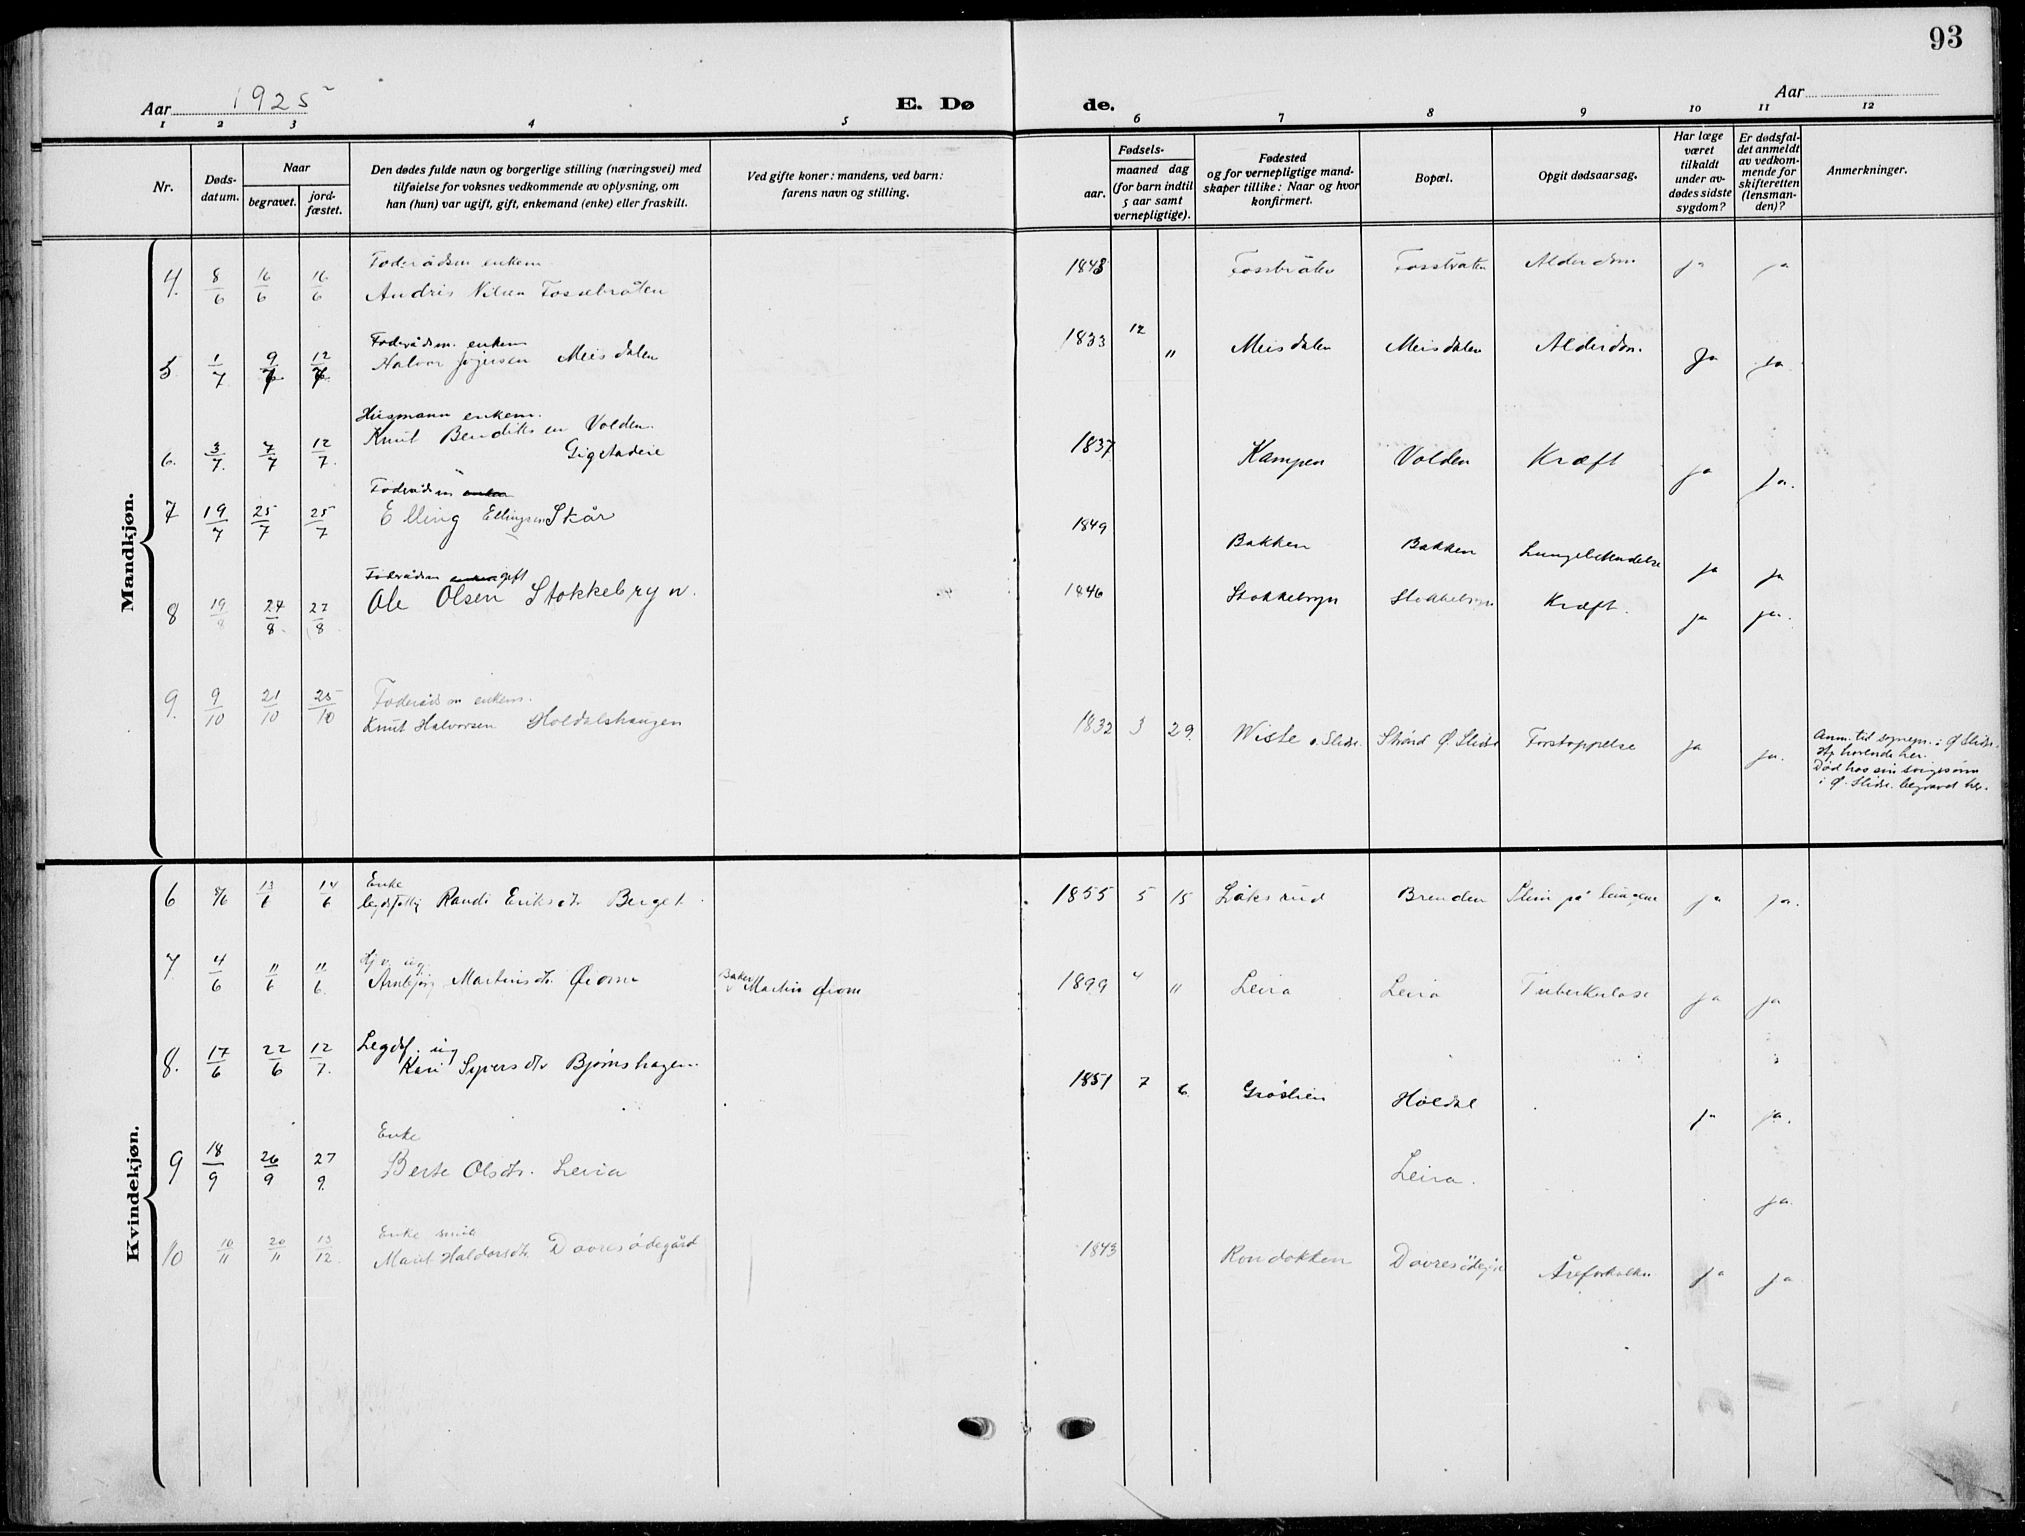 93
Aar 1925
E. Dø
de.
Aar
1 2 3 4 5 6 7 8 9 10 11 12
Nr.
Døds-
datum.
Naar
begravet.
jord-
fæstet.
Den dødes fulde navn og borgerlige stilling (næringsvei) med
tilføielse for voksnes vedkommende av oplysning, om
han (hun) var ugift, gift, enkemand (enke) eller fraskilt.
Ved gifte koner: mandens, ved barn:
farens navn og stilling.
Fødsels-
aar.
maaned dag
(for barn indtil
5 aar samt
vernepligtige).
Fødested
og for vernepligtige mand-
skaper tillike: Naar og hvor
konfirmert.
Bopæl.
Opgit dødsaarsag.
Har læge
været
tilkaldt
under av-
dødes sidste
sygdom?
Er dødsfal-
det anmeldt
av vedkom-
mende for
skifteretten
(lensman-
den)?
Anmerkninger.
Mandkjøn.
Foderådsm enkem.
4. 8/6 16/6 16/6 Andris Nilsen Fossebråten 1843 Fossbråten Fossbråten Alderdom ja ja
Foderådsm. enkem
5. 1/7 9/7 12/7 Halvor Meisdalen 1833 12 " Meisdalen Meisdalen Alderdom. Ja ja.
Husmann enkem.
6. 3/7. 7/7 12/7. Knut Bendiksen Volden. 1837 Kampen Volden Kræft ja ja.
Foderådsm
7 19/7 25/7 25/7 Elling Ellingsen Skår 1849 Bakken Bakken Lungebetendelse ja ja
Foderådsm gift
8 19/8 24/8 27/8 Ole Olsen Stokkebryn. 1846 Stokkebryn Stokkebryn Kræft. ja ja.
Foderådsm enkem.
9. 9/10 21/10 25/10 Knut Halvorsen Holdalshaugen 1832 3 29. Wiste ø. Slidr. Strand Ø. Slidre Forstoppelse ja ja.
Anm. til sognepr. i Ø Slidr.
Hj hørende her.
Død hos sin svigersønn
i Ø. Slidr. begravet her.
Kvindekjøn.
Enke
6 8/6 13/6 14/6 legdsfattig Randi Eriksdtr Berget. 1855 5 15 Låksrud Brenden Slim på lungene ja ja.
ug.
7. 4/6 11/6 11/6. Arnbjørg Martinsdtr. Øiom Baker Martin Øiom 1899 4 " Leira Leira Tuberkulose ja ja
Legdsf. ug
8. 17/6 22/6 12/7. Kari Syversdtr Bjørnshagen. 1851 7 6. Gråslien Høldal ja ja.
Enke
9 18/9 26/9 27/9. Berte Olsdtr. Leira Leira. ja.
Enke
10 10/11 20/11 13/12. Marit Haldorsdtr. Davresødegård 1843 Rondokken Davresødegård Åreforkalkn ja ja